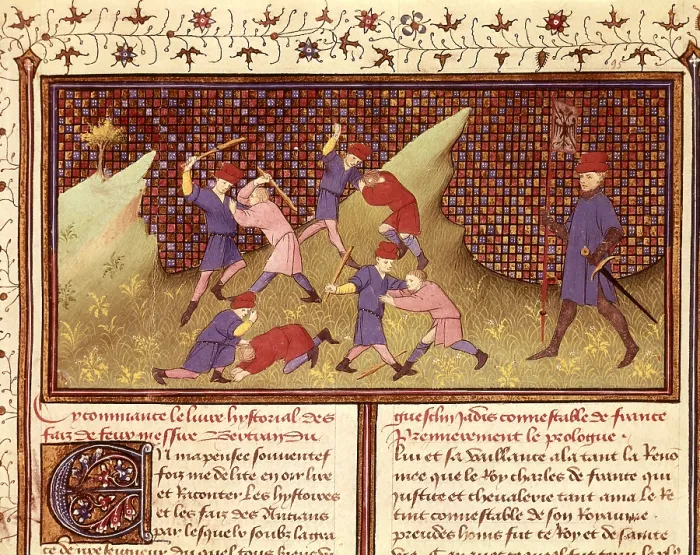 Cy commance le livre hystorial des
faiz de feu messire Bertran du
En ma pensee souventef
foiz me delite en oir lire
et Raconter les hystoires
et les faiz des Antians
par lesquelx soubz la gra
ce de
guesclin Jadis connestable de france
Premierement le prologue.
Lui et sa vaillance ala tant la Reno
mee que le Roy charles de france qui
Justice et chevalerie tant ama le Re
tint connestable de son Royaume.
preudes homs fut ce Roy et de sainte
vie